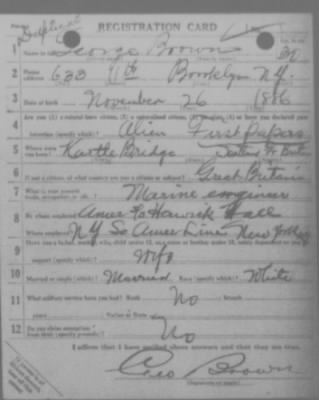 REGISTRATION CARD
1 Name in full George Brown 30
2 Home address 633 11th Brooklyn N.Y.
3 Date of birth November 26 1886
4 Are you (1) a natural-born citizen, (2) a naturalized citizen, (3) an alien, (4) or have you declared your
intention (specify which)? Alien First papers
5 Where were you born? Bridge
6 If not a citizen, of what country are you a citizen or subject? Great Britain
7 What is your present trade, occupation, or office? Marine engineer
8 By whom employed?
Where employed? N Y So Amer Line New York
9 Have you a father, mother, wife, child under 12, or a sister or brother under 12, solely dependent on you for
support (specify which)? Wife
10 Married or single (which)? Married Race (specify which)? White
11 What military service have you had? Rank No ; branch
years ; Nation or State
12 Do you claim exemption from draft (specify grounds)? No
I affirm that I have verified above answers and that they are true.
Geo Brown
(Signature or mark)